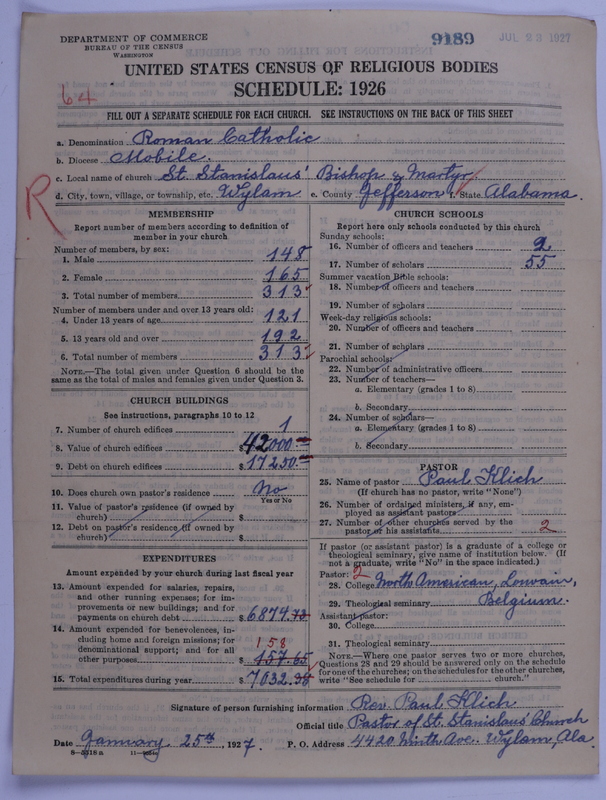 DEPARTMENT OF COMMERCE
BUREAU OF THE CENSUS
WASHINGTON
9189
JUL 23 1927
UNITED STATES CENSUS OF RELIGIOUS BODIES
SCHEDULE: 1926
64
FILL OUT A SEPARATE SCHEDULE FOR EACH CHURCH. SEE INSTRUCTIONS ON THE BACK OF THIS SHEET
a. Denomination Roman Catholic
b. Diocese Mobile.
c. Local name of church St. Stanislaus' Bishop & Martyr
d. City, town, village, or township, etc. Wylam e. County Jefferson State Alabama.
R
MEMBERSHIP
Report number of members according to definition of
member in your church.
Number of members, by sex:
1. Male 148
2. Female 165
3. Total number of members 313
Number of members under and over 13 years old:
4. Under 13 years of age 121
5. 13 years old and over 192
6. Total number of members 313
NOTE.—The total given under Question 6 should be
same as the total of males and females given under Question 3.
CHURCH BUILDINGS
See instructions, paragraphs 10 to 12
7. Number of church edifices 1
8. Value of church edifices $42000.—
9. Debt on church edifices $17250.—
10. Does church own pastor's residence No
Yes or No
11. Value of pastor's residence (if owned by
church) $
12. Debt on pastor's residence (if owned by
church) $
EXPENDITURES
Amount expended by your church during last fiscal year
13. Amount expended for salaries, repairs,
and other running expenses; for im-
provements or new buildings; and for
payments on church debt $6874.73
14. Amount expended for benevolences, in-
cluding home and foreign missions; for
denominational support; and for all
other purposes 158 $157.65
15. Total expenditures during year $7032.38
CHURCH SCHOOLS
Report here only schools conducted by this church
Sunday schools:
16. Number of officers and teachers 2
17. Number of scholars 55
Summer vacation Bible schools:
18. Number of officers and teachers
19. Number of scholars
Week-day religious schools:
20. Number of officers and teachers
21. Number of scholars
Parochial schools:
22. Number of administrative officers
23. Number of teachers—
a. Elementary (grades 1 to 8)
b. Secondary
24. Number of scholars—
a. Elementary (grades 1 to 8)
b. Secondary
PASTOR
25. Name of pastor Paul Klich
(If church has no pastor, write "None")
26. Number of ordained ministers, if any, em-
ployed as assistant pastors
27. Number of other churches served by the
pastor or his assistants 2
If pastor (or assistant pastor) is a graduate of a college or
theological seminary, give name of institution below. (If
not a graduate, write "No" in the space indicated.)
Pastor: 2
28. College North American, Louvain,
29. Theological seminary Belgium.
Assistant pastor:
30. College
31. Theological seminary
NOTE.—Where one pastor serves two or more churches,
Questions 28 and 29 should be answered only on the schedule
for one of the churches; on the schedules for the other churches,
write "See schedule for church."
Signature of person furnishing information Rev. Paul Klich
Official title Pastor of St. Stanislaus' Church
Date January 25th, 1927. P. O. Address 4420 Ninth Ave. Wylam, Ala.